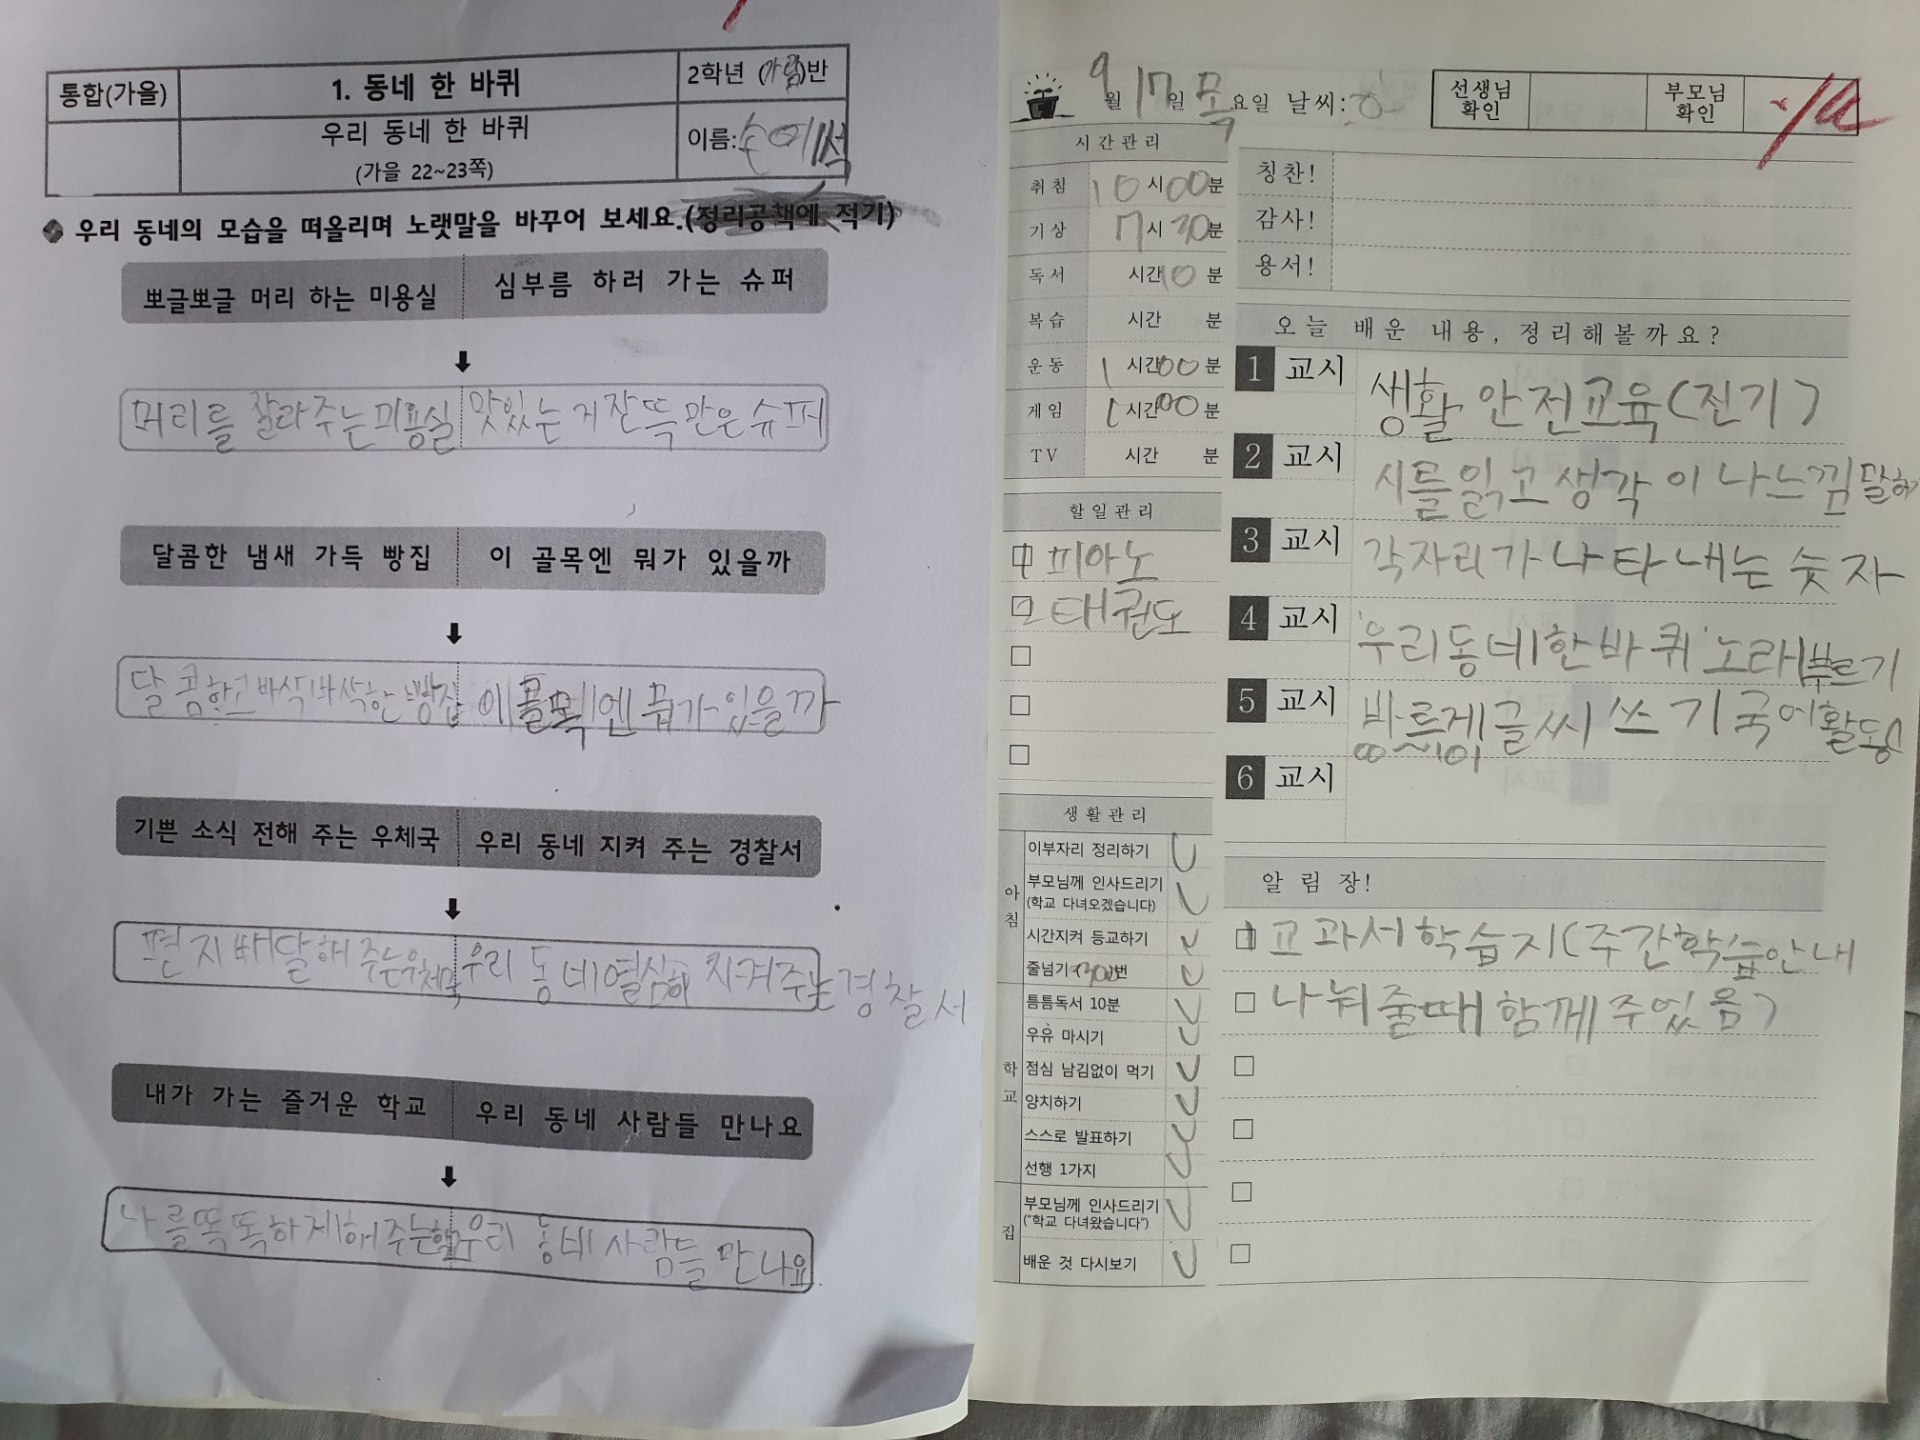 통합(가을)
1. 동네 한 바퀴
2학년 (가람)반
우리 동네 한 바퀴
(가을 22~23쪽)
이름:손예석
우리 동네의 모습을 떠올리며 노랫말을 바꾸어 보세요.(정리공책에 적기)
뽀글뽀글 머리 하는 미용실
심부름 하러 가는 슈퍼
머리를 잘라주는미용실
맛있는게잔뜩많은슈퍼
달콤한 냄새 가득 빵집
이 골목엔 뭐가 있을까
달콤하고바삭바삭한빵집
이골목엔뭐가있을까
기쁜 소식 전해 주는 우체국
우리 동네 지켜 주는 경찰서
편지배달해주는우체국
우리동네열심히지켜주는경찰서
내가 가는 즐거운 학교
우리 동네 사람들 만나요
나를똑똑하게해주는학교
우리동네사람들만나요.
9월 17일 목요일 날씨:
선생님 확인
부모님 확인
시간관리
취침 10시00분
기상 7시30분
독서 시간10분
복습 시간 분
운동 1시간00분
게임 1시간00분
TV 시간 분
칭찬!
감사!
용서!
오늘 배운 내용, 정리해볼까요?
1 교시 생활 안전교육(전기)
2 교시 시를읽고생각이나느낌말하기
3 교시 각자리가나타내는숫자
4 교시 '우리동네한바퀴'노래부르기
5 교시 바르게글씨쓰기국어활동
6 교시
할일관리
피아노
태권도
생활관리
아침
이부자리 정리하기
부모님께 인사드리기
(학교 다녀오겠습니다)
시간지켜 등교하기
줄넘기(300번
학교
틈틈독서 10분
우유 마시기
점심 남김없이 먹기
양치하기
스스로 발표하기
선행 1가지
집
부모님께 인사드리기
("학교 다녀왔습니다")
배운 것 다시보기
알림장!
교과서학습지(주간학습안내
나눠줄때함께주었음)